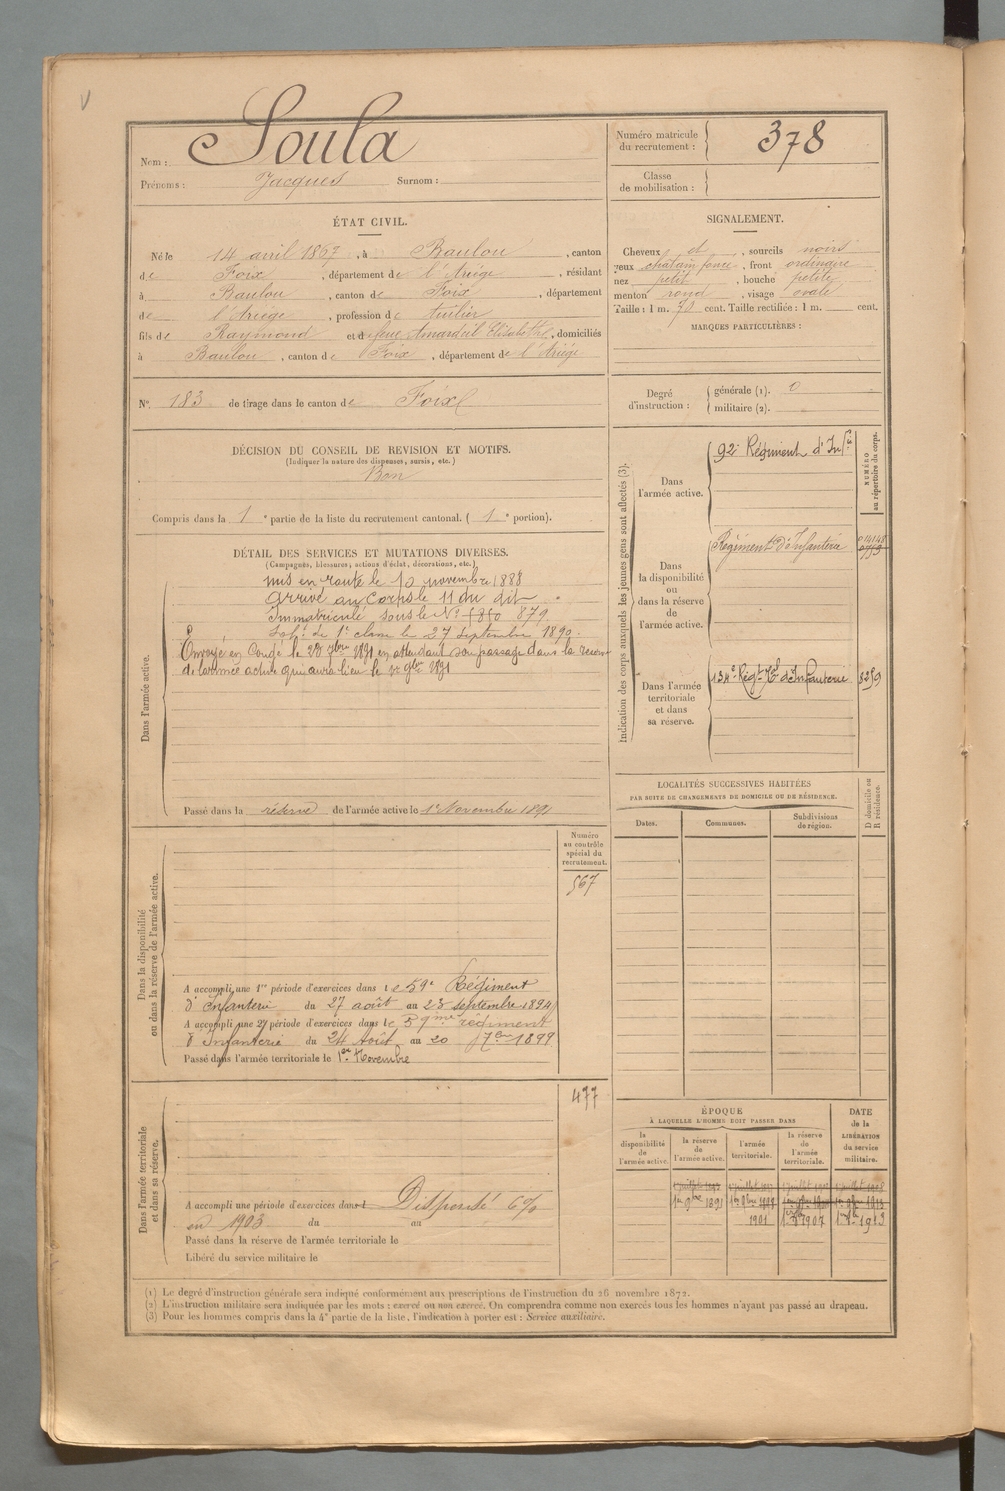 V
Nom : Soula
Prénoms : Jacques Surnom :
Numéro matricule du recrutement : 378
Classe de mobilisation :
ÉTAT CIVIL.
Né le 14 avril 1867, à Baulou, canton
de Foix, département de l'Ariège, résidant
à Baulou, canton de Foix, département
de l'Ariège, profession de tuilier
fils de Raymond et de feue Amardeil Elisabeth, domiciliés
à Baulou, canton de Foix, département de l'Ariège
N° 183 de tirage dans le canton de Foix
SIGNALEMENT.
Cheveux et, sourcils noirs
yeux chatain foncé, front ordinaire
nez petit, bouche petite
menton rond, visage ovale
Taille : 1 m. 70 cent. Taille rectifiée : 1 m. cent.
MARQUES PARTICULIÈRES :
Degré d'instruction :
générale (1). 0
militaire (2).
DÉCISION DU CONSEIL DE REVISION ET MOTIFS.
(Indiquer la nature des dispenses, sursis, etc.)
Bon
Compris dans la 1e partie de la liste du recrutement cantonal. ( 1e portion).
DÉTAIL DES SERVICES ET MUTATIONS DIVERSES.
(Campagnes, blessures, actions d'éclat, décorations, etc.)
Dans l'armée active.
mis en route le 10 novembre 1888
arrivé au Corps le 11 du dit
Immatriculé sous le N° 879
Sol. de 1e classe le 27 Septembre 1890.
Envoyé en Congé le 1891 en attendant son passage dans la réserve
de l'armée active qui aura lieu le 1er 9bre 1891
Passé dans la réserve de l'armée active le 1er Novembre 1891
Indication des corps auxquels les jeunes gens sont affectés (3).
NUMÉRO au répertoire du corps.
Dans l'armée active.
92e Régiment d'Inf.
Dans la disponibilité ou dans la réserve de l'armée active.
Régiment d'Infanterie
Dans l'armée territoriale et dans sa réserve.
134e Régt Tal d'Infanterie
LOCALITÉS SUCCESSIVES HABITÉES
PAR SUITE DE CHANGEMENTS DE DOMICILE OU DE RÉSIDENCE.
Dates. Communes. Subdivisions de région. D domicile ou R résidence.
Dans la disponibilité ou dans la réserve de l'armée active.
Numéro au contrôle spécial du recrutement.
567
A accompli une 1re période d'exercices dans le 59e Régiment
d'Infanterie du 27 août au 23 septembre 1894
A accompli une 2e période d'exercices dans le 59me régiment
d'Infanterie du 24 Août au 20 7bre 1899
Passé dans l'armée territoriale le 1er Novembre
Dans l'armée territoriale et dans sa réserve.
477
A accompli une période d'exercices dans Dispensé 6%
en 1903 du au
Passé dans la réserve de l'armée territoriale le
Libéré du service militaire le
ÉPOQUE
À LAQUELLE L'HOMME DOIT PASSER DANS
DATE de la LIBÉRATION du service militaire.
la disponibilité de l'armée active. la réserve de l'armée active. l'armée territoriale. la réserve de l'armée territoriale.
1er 9bre 1891
1901 1907 1913
(1) Le degré d'instruction générale sera indiqué conformément aux prescriptions de l'instruction du 26 novembre 1872.
(2) L'instruction militaire sera indiquée par les mots : exercé ou non exercé. On comprendra comme non exercés tous les hommes n'ayant pas passé au drapeau.
(3) Pour les hommes compris dans la 4e partie de la liste, l'indication à porter est : Service auxiliaire.